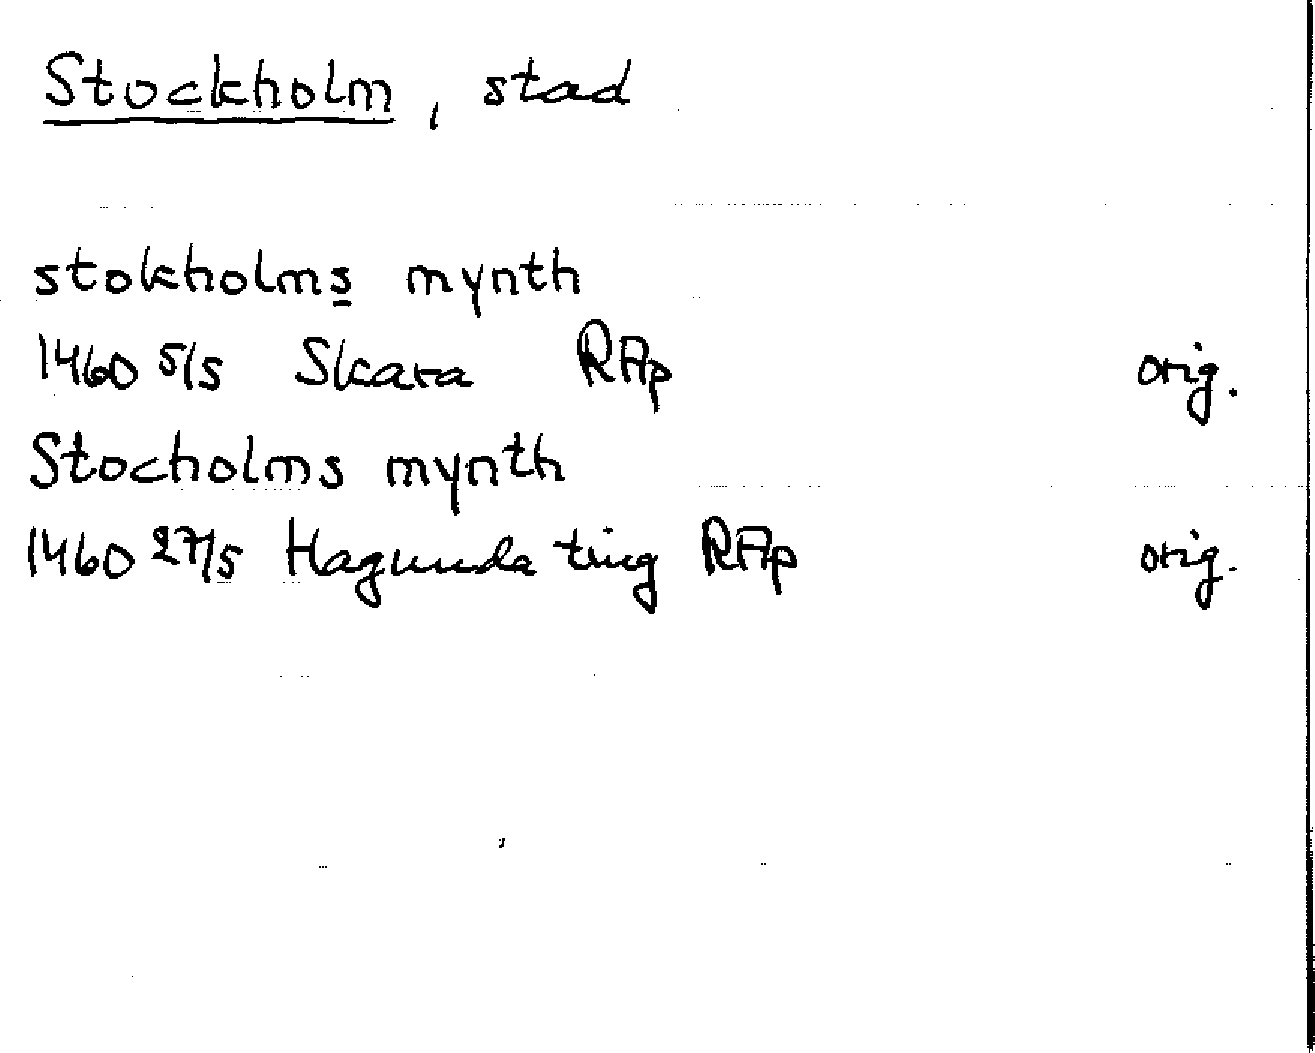 Stockholm, stad
stokholms mynth
1460 5/5 Skara RAp orig.
Stocholms mynth
1460 27/5 Hagunda ting RAp orig.